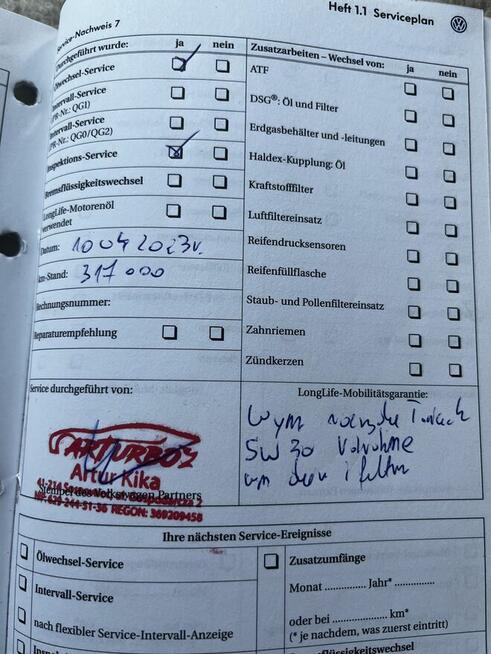 Heft 1.1 Serviceplan
Service-Nachweis 7
Durchgeführt wurde: ja nein
Ölwechsel-Service
Intervall-Service
(PR-Nr.: QG1)
Intervall-Service
(PR-Nr.: QG0/QG2)
Inspektions-Service
Bremsflüssigkeitswechsel
LongLife-Motorenöl
verwendet
Datum: 10 04 2023r.
km-Stand: 317 000
Rechnungsnummer:
Reparaturempfehlung
Zusatzarbeiten – Wechsel von: ja nein
ATF
DSG®: Öl und Filter
Erdgasbehälter und -leitungen
Haldex-Kupplung: Öl
Kraftstofffilter
Luftfiltereinsatz
Reifendrucksensoren
Reifenfüllflasche
Staub- und Pollenfiltereinsatz
Zahnriemen
Zündkerzen
Service durchgeführt von:
ARTURBO
Artur Kika
41-214
Stempel des Volkswagen Partners
REGON: 369209458
LongLife-Mobilitätsgarantie:
5W30
Ihre nächsten Service-Ereignisse
Ölwechsel-Service
Intervall-Service
nach flexibler Service-Intervall-Anzeige
Zusatzumfänge
Monat .............. Jahr* ..............
oder bei ................... km*
(* je nachdem, was zuerst eintritt)